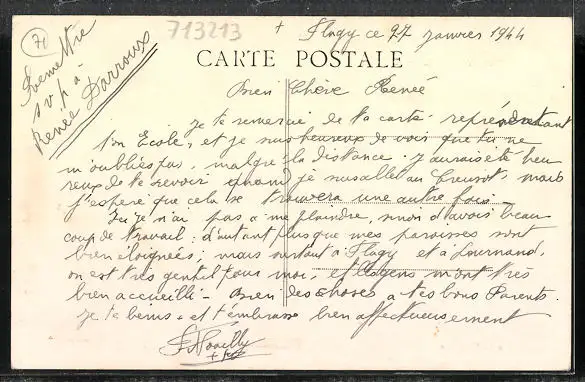 71
713213
Remettre
s v p à
Renée Darroux
+ Flagy ce 27 janvier 1944
CARTE POSTALE
Bien Chère Renée
je te remercie de ta carte représentant
ton Ecole, et je suis heureux de voir que tu ne
m'oublies pas, malgré la distance. J'aurais été heu
reux de te revoir quand je suis allé au Creusot, mais
j'espère que cela se trouvera une autre fois -
Ici je n'ai pas à me plaindre, sinon d'avoir beau
coup de travail : d'autant plus que mes paroisses sont
bien éloignées ; mais surtout à Flagy et à Lournand,
on est très gentil pour moi, et m'ont très
bien accueilli - Bien des choses à tes bons Parents.
Je te bénis et t'embrasse bien affectueusement